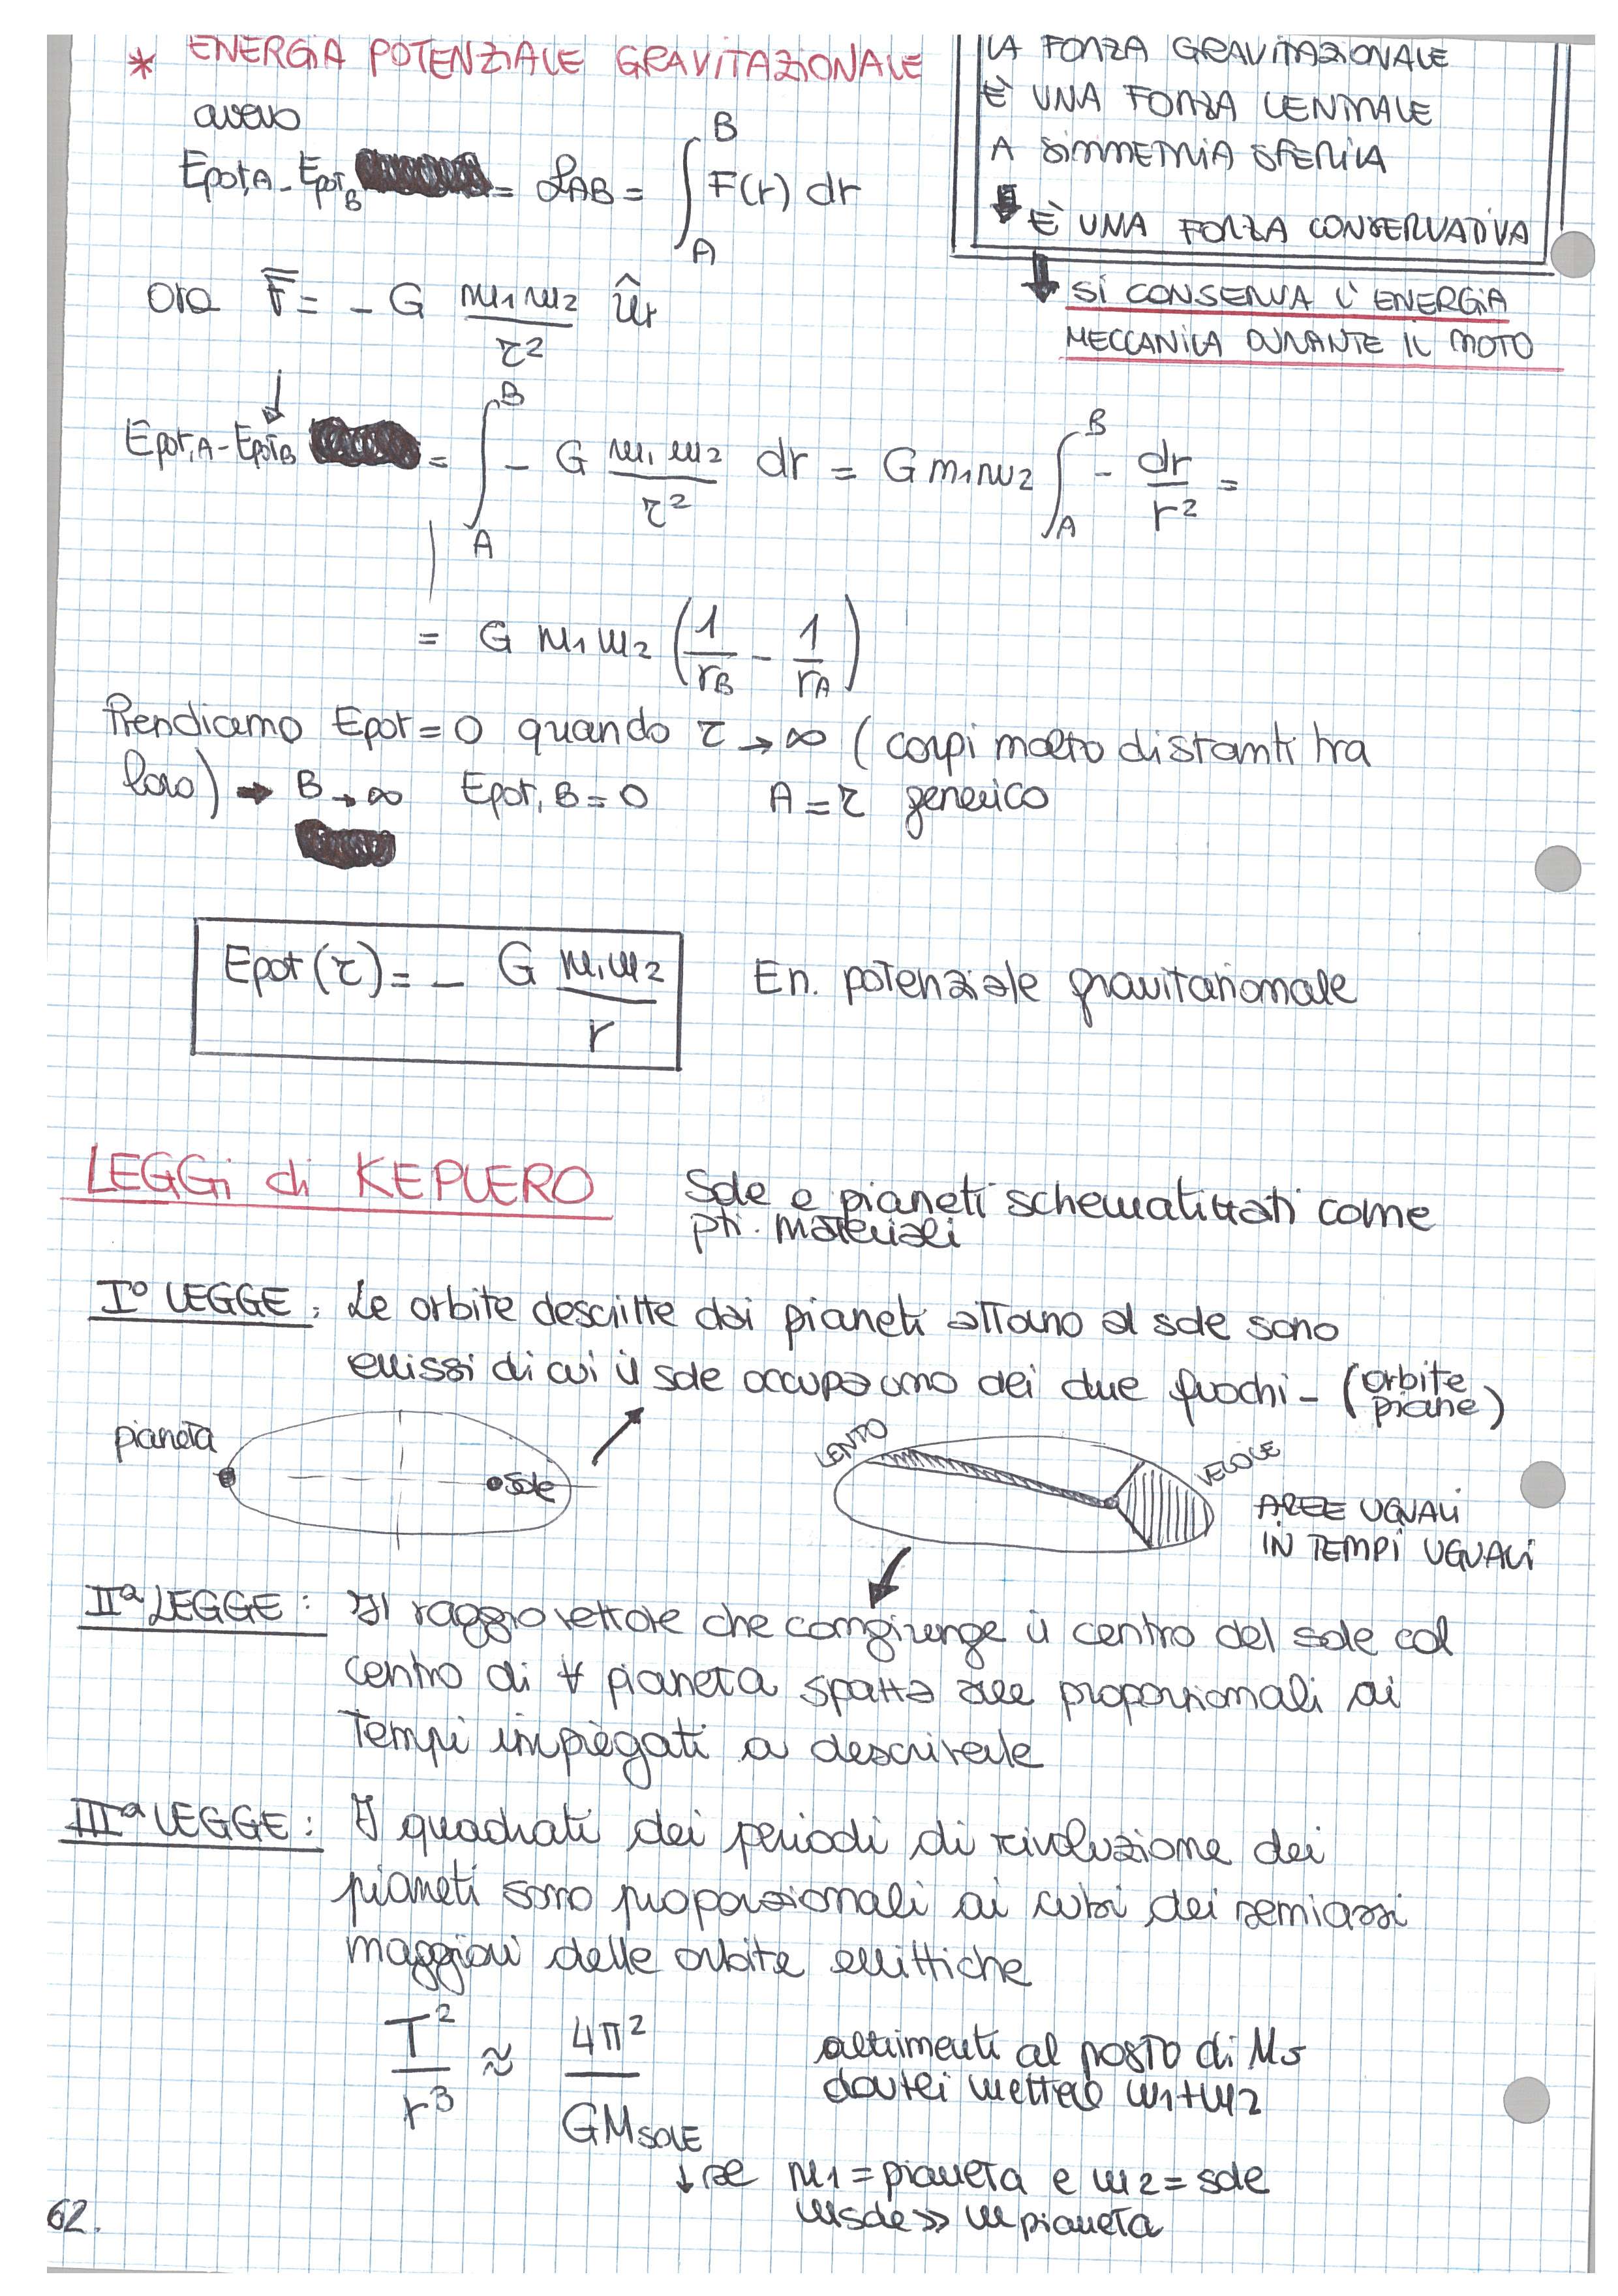 * ENERGIA POTENZIALE GRAVITAZIONALE
LA FORZA GRAVITAZIONALE
È UNA FORZA CENTRALE
A SIMMETRIA SFERICA
È UNA FORZA CONSERVATIVA
SI CONSERVA L'ENERGIA
MECCANICA DURANTE IL MOTO
avevo
Epot,A - Epot,B = LAB = ∫_A^B F(r) dr
ora F̅ = - G m1m2/r² ûr
↓
Epot,A - Epot,B = ∫_A^B - G m1m2/r² dr = G m1m2 ∫_A^B - dr/r² =
= G m1m2 (1/rB - 1/rA)
Prendiamo Epot = 0 quando r → ∞ (corpi molto distanti tra
loro) → B → ∞ Epot,B = 0 A = r generico
Epot(r) = - G m1m2/r En. potenziale gravitazionale
LEGGI di KEPLERO Sole e pianeti schematizzati come
pti. materiali
I° LEGGE: Le orbite descritte dai pianeti attorno al sole sono
ellissi di cui il sole occupa uno dei due fuochi - (orbite
piane)
pianeta
sole
LENTO
VELOCE
AREE UGUALI
IN TEMPI UGUALI
IIª LEGGE: Il raggio vettore che congiunge il centro del sole col
centro di ∀ pianeta spazza aree proporzionali ai
tempi impiegati a descriverle
IIIª LEGGE: I quadrati dei periodi di rivoluzione dei
pianeti sono proporzionali ai cubi dei semiassi
maggiori delle orbite ellittiche
T²/r³ ≈ 4π²/GMSOLE
altrimenti al posto di Ms
dovrei mettere m1+m2
↓ se m1 = pianeta e m2 = sole
msole >> mpianeta
62.